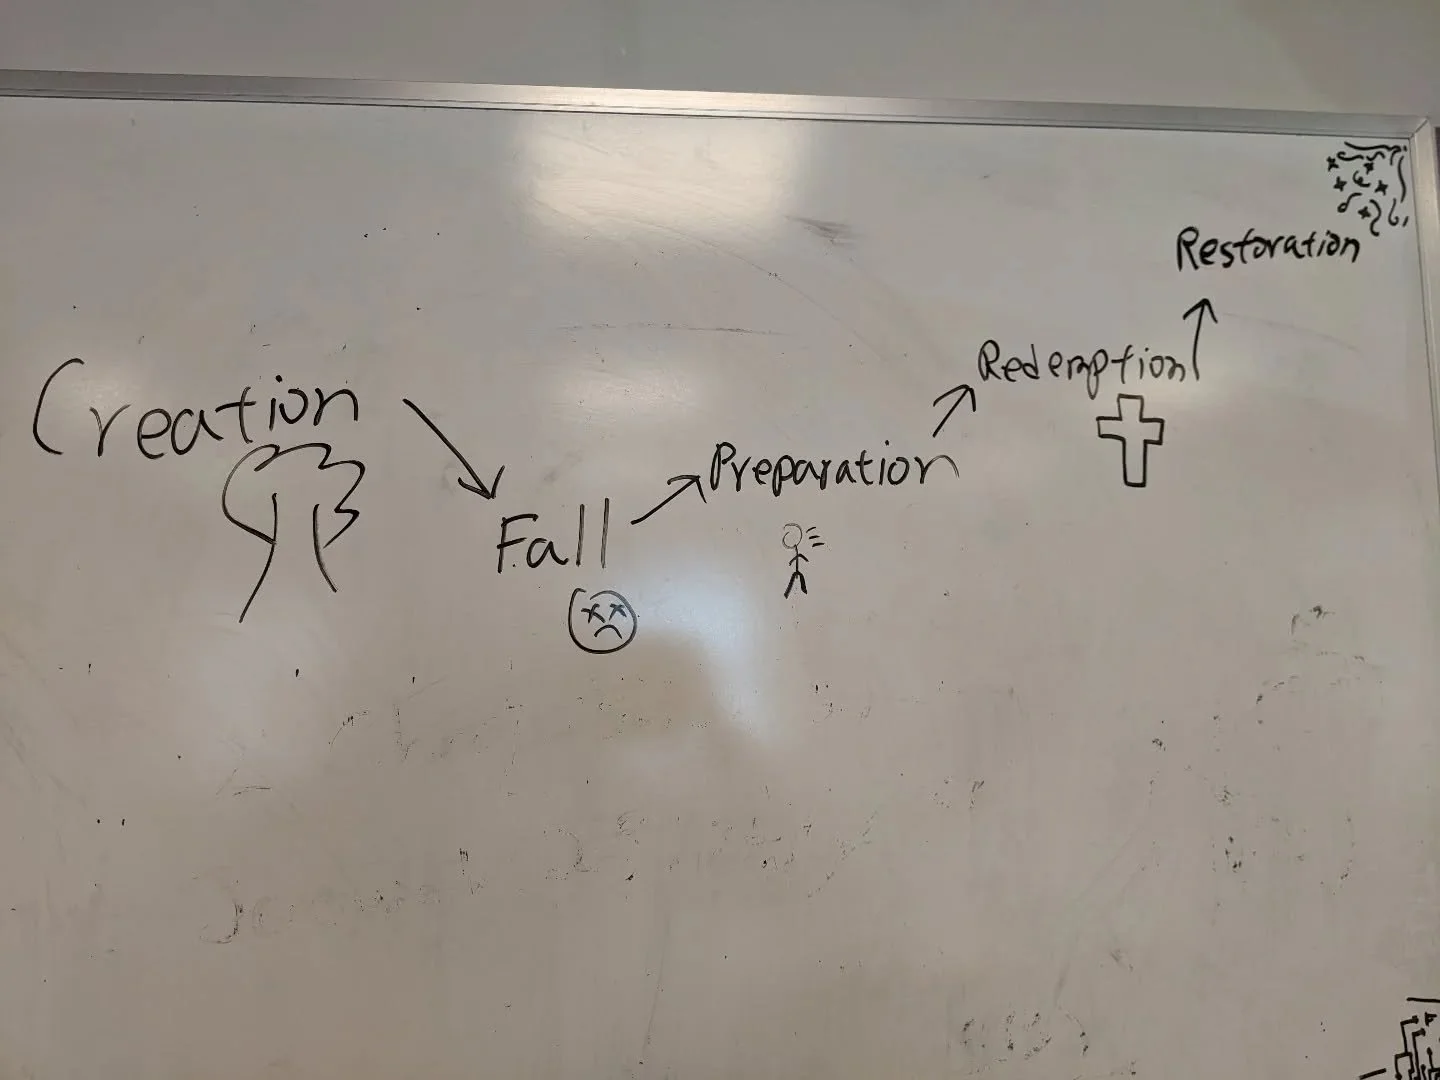 Creation
Fall
Preparation
Redemption
Restoration